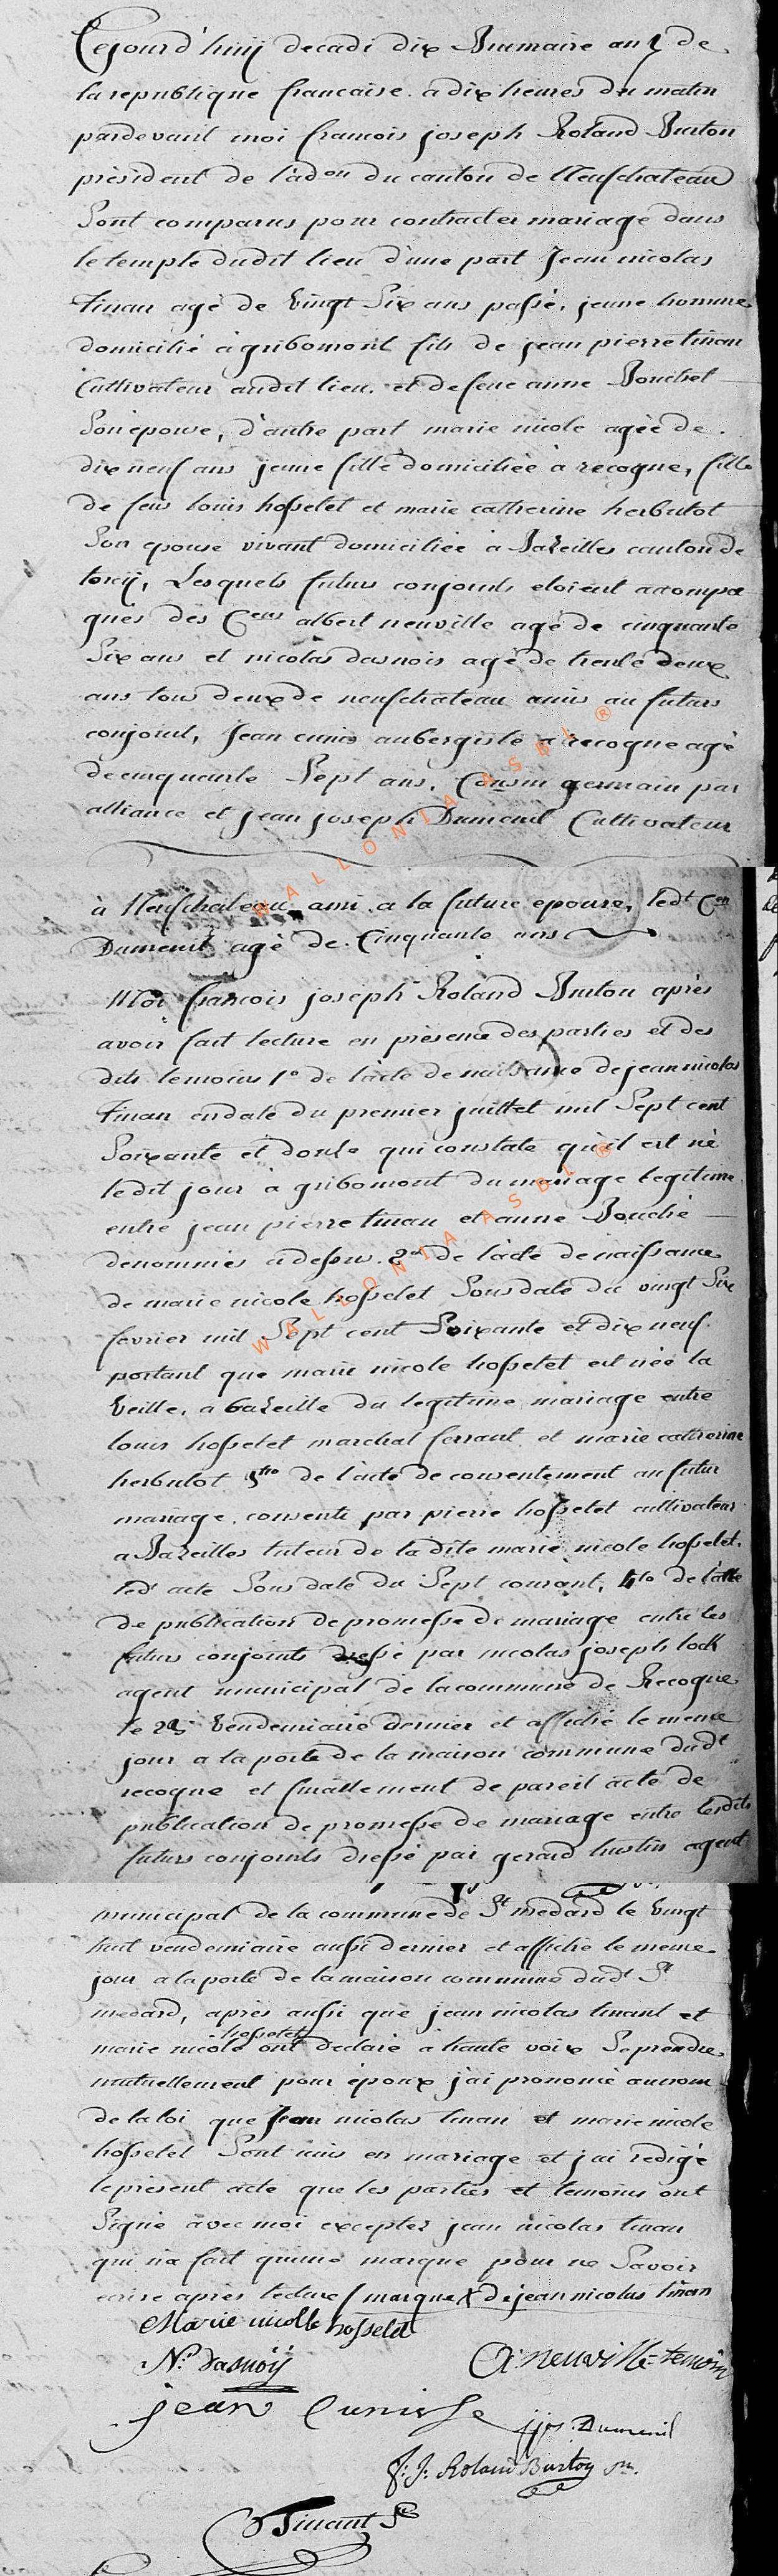 Cejourd'huij decadi dix Brumaire an 7 de
la republique francaise a dix heures du matin
pardevant moi francois joseph Roland Burton
président de l'adon du canton de Neufchateau
Sont comparus pour contracter mariage dans
le temple dudit lieu d'une part Jean nicolas
tinan agé de vingt Six ans passé, jeune homme
domicilié à gribomont fils de jean pierre tinan
Cultivateur audit lieu. et de feue anne Bouchet
Son epouse, d'autre part marie nicole agée de
dix neuf ans jeune fille domiciliée à recogne, fille
de feu louis hosselet et marie catherine herbulot
Son epouse vivant domiciliée à Bazeilles canton de
torcij, Lesquels futurs conjoints etoient accompa
gnés des Cens albert neuville agé de cinquante
Six ans et nicolas dasnois agé de trente deux
ans tous deux de neufchateau amis au futurs
conjoint, Jean cunis aubergiste a recogne agé
de cinquente Sept ans, Cousin germain par
alliance et jean joseph Dumenil Cultivateur
à Neufchateau ami a la future epouse, ledt Cen
Dumenil agé de Cinquante ans
Moi francois joseph Roland Burton après
avoir fait lecture en présence des parties et des
dits temoins 1° de l'acte de naissance de jean nicolas
tinan en date du premier juillet mil Sept cent
Soixante et douse qui constate qu'il est né
ledit jour à gribomont du mariage legitime
entre jean pierre tinan et anne Bouché
denommés cidessus. 2° de l'acte de naissance
de marie nicole hosselet Sous date du vingt Six
fevrier mil Sept cent Soixante et dix neuf
portant que marie nicole hosselet est née la
veille, a bazeille du legitime mariage entre
louis hosselet marchal ferrant et marie catherine
herbulot 3tio de l'acte de consentement au futur
mariage, consenti par pierre hosselet cultivateur
a Bazeilles tuteur de ladite marie nicole hosselet,
ledt acte Sous date du Sept courant, 4to de l'acte
de publication de promesse de mariage entre les
futurs conjoints dressé par nicolas joseph lock
agent municipal de la commune de Recogne
le 28 vendemiaire dernier et affiché le meme
jour a la porte de la maison commune dudt
recogne et finallement de pareil acte de
publication de promesse de mariage entre lesdits
futurs conjoints dressé par gerard hustin agent
municipal de la commune de St medard le vingt
huit vendemiaire aussi dernier et affiché le meme
jour a la porte de la maison commune dudt St
medard, après aussi que jean nicolas tinant et
hosselet
marie nicole ont declaré a haute voix Se prendre
mutuellement pour époux j'ai prononcé au nom
de la loi que Jean nicolas tinan et marie nicole
hosselet Sont unis en mariage et j'ai redigé
le présent acte que les parties et temoins ont
Signé avec moi excepter jean nicolas tinan
qui n'a fait qu'une marque pour ne Savoir
ecrire après lecture / marque X de jean nicolas tinan
Marie nicolle hosselet
Ns dasnoij
A: neuville temoin
jean Cunisse
jjos. Dumenil
f: J: Roland Burton
Tinant
WALLONIA ASBL ®
WALLONIA ASBL ®